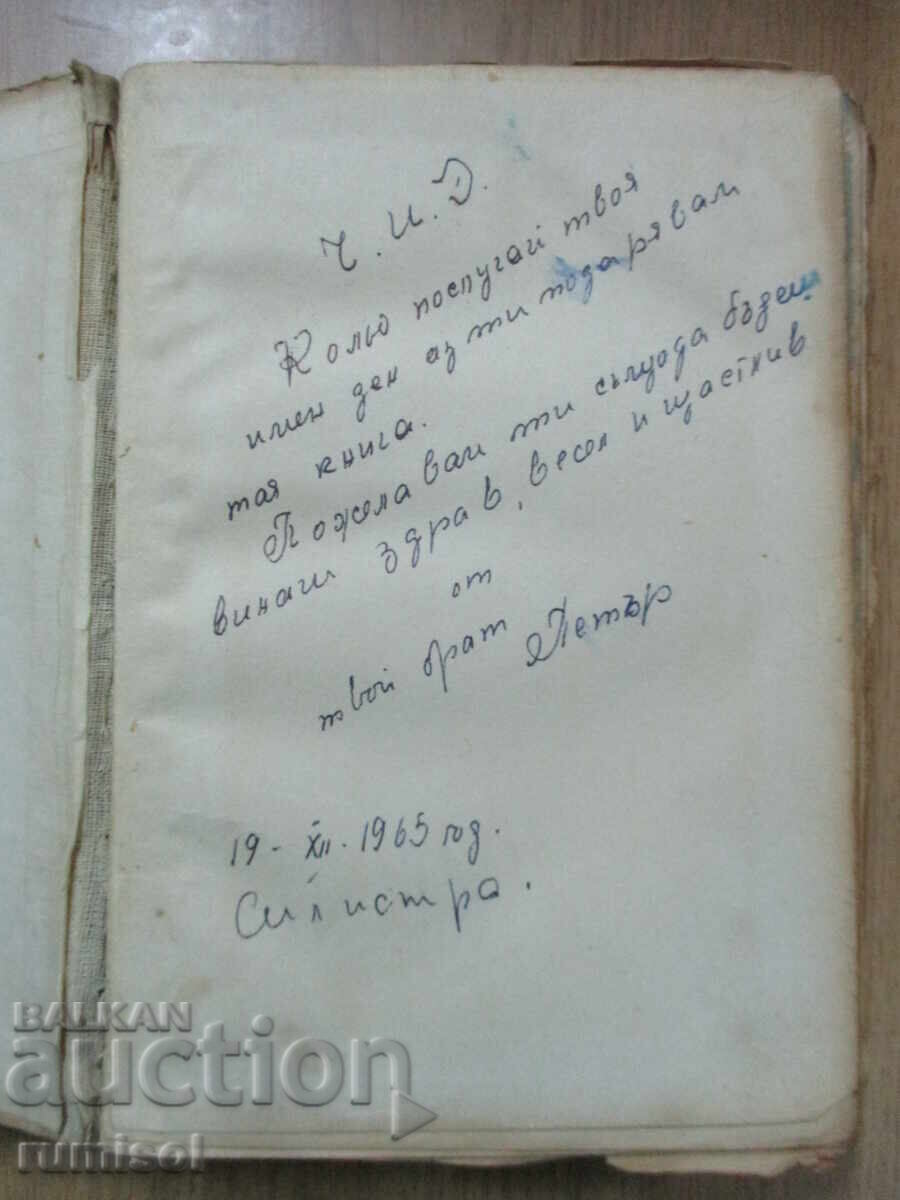 Ч.И.Д.
Кольо послугай твоя
имен ден аз ти подарявам
тая книга.
Пожелавам ти същода бъдеш
винаги здрав, весел и щастлив
от
твой брат Петър
19 - XII. 1965 год.
Силистра.
BALKAN
auction
rumisol